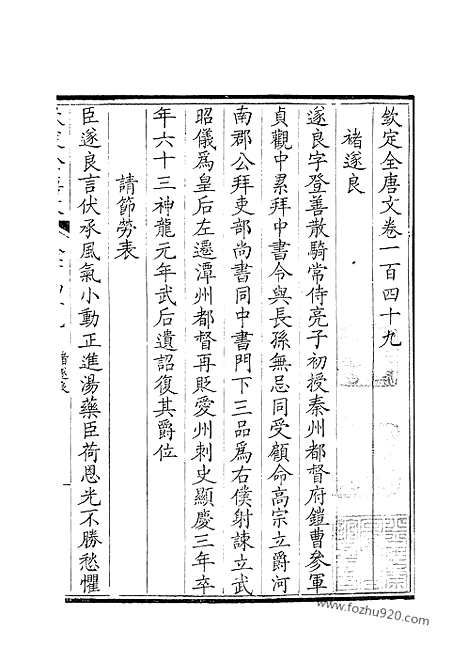 欽定全唐文卷一百四十九
褚遂良
遂良字登善散騎常侍亮子初授秦州都督府鎧曹參軍
貞觀中累拜中書令與長孫無忌同受顧命高宗立爵河
南郡公拜吏部尚書同中書門下三品爲右僕射諫立武
昭儀爲皇后左遷潭州都督再貶愛州刺史顯慶三年卒
年六十三神龍元年武后遺詔復其爵位
請節勞表
臣遂良言伏承風氣小動正進湯藥臣荷恩光不勝愁懼
褚遂良
一
www.fozhu920.com